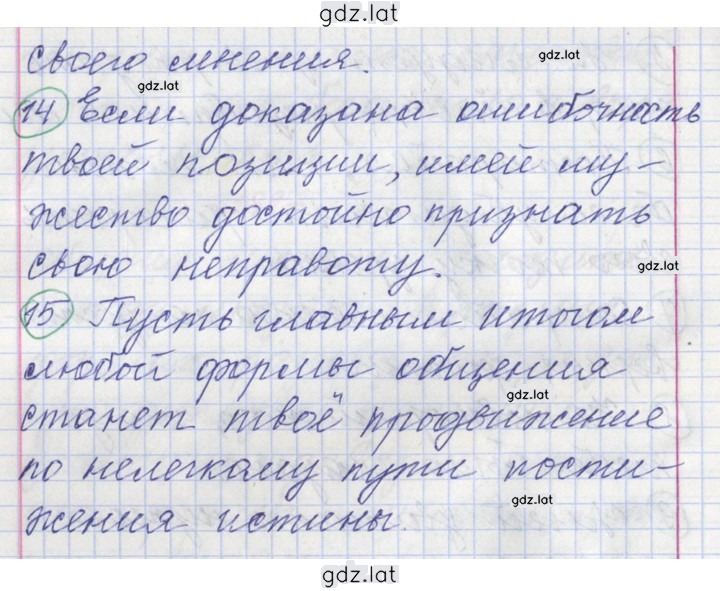 gdz.lat
своего мнения.
gdz.lat
gdz.lat
14 Если доказана ошибочность
твоей позиции, имей му-
жество достойно признать
свою неправоту.
gdz.lat
15 Пусть главным итогом
любой формы общения
gdz.lat
станет твоё продвижение
по нелегкому пути пости-
gdz.lat
жения истины.
gdz.lat